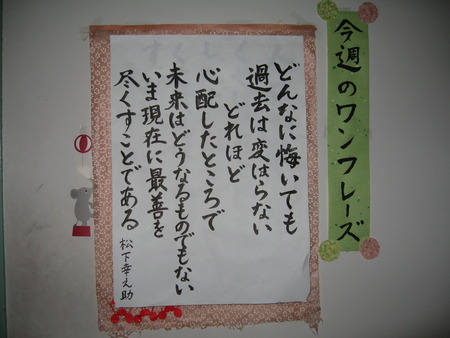 今週のワンフレーズ
どんなに悔いても
過去は変はらない
どれほど
心配したところで
未来はどうなるものでもない
いま現在に最善を
尽くすことである
松下幸之助